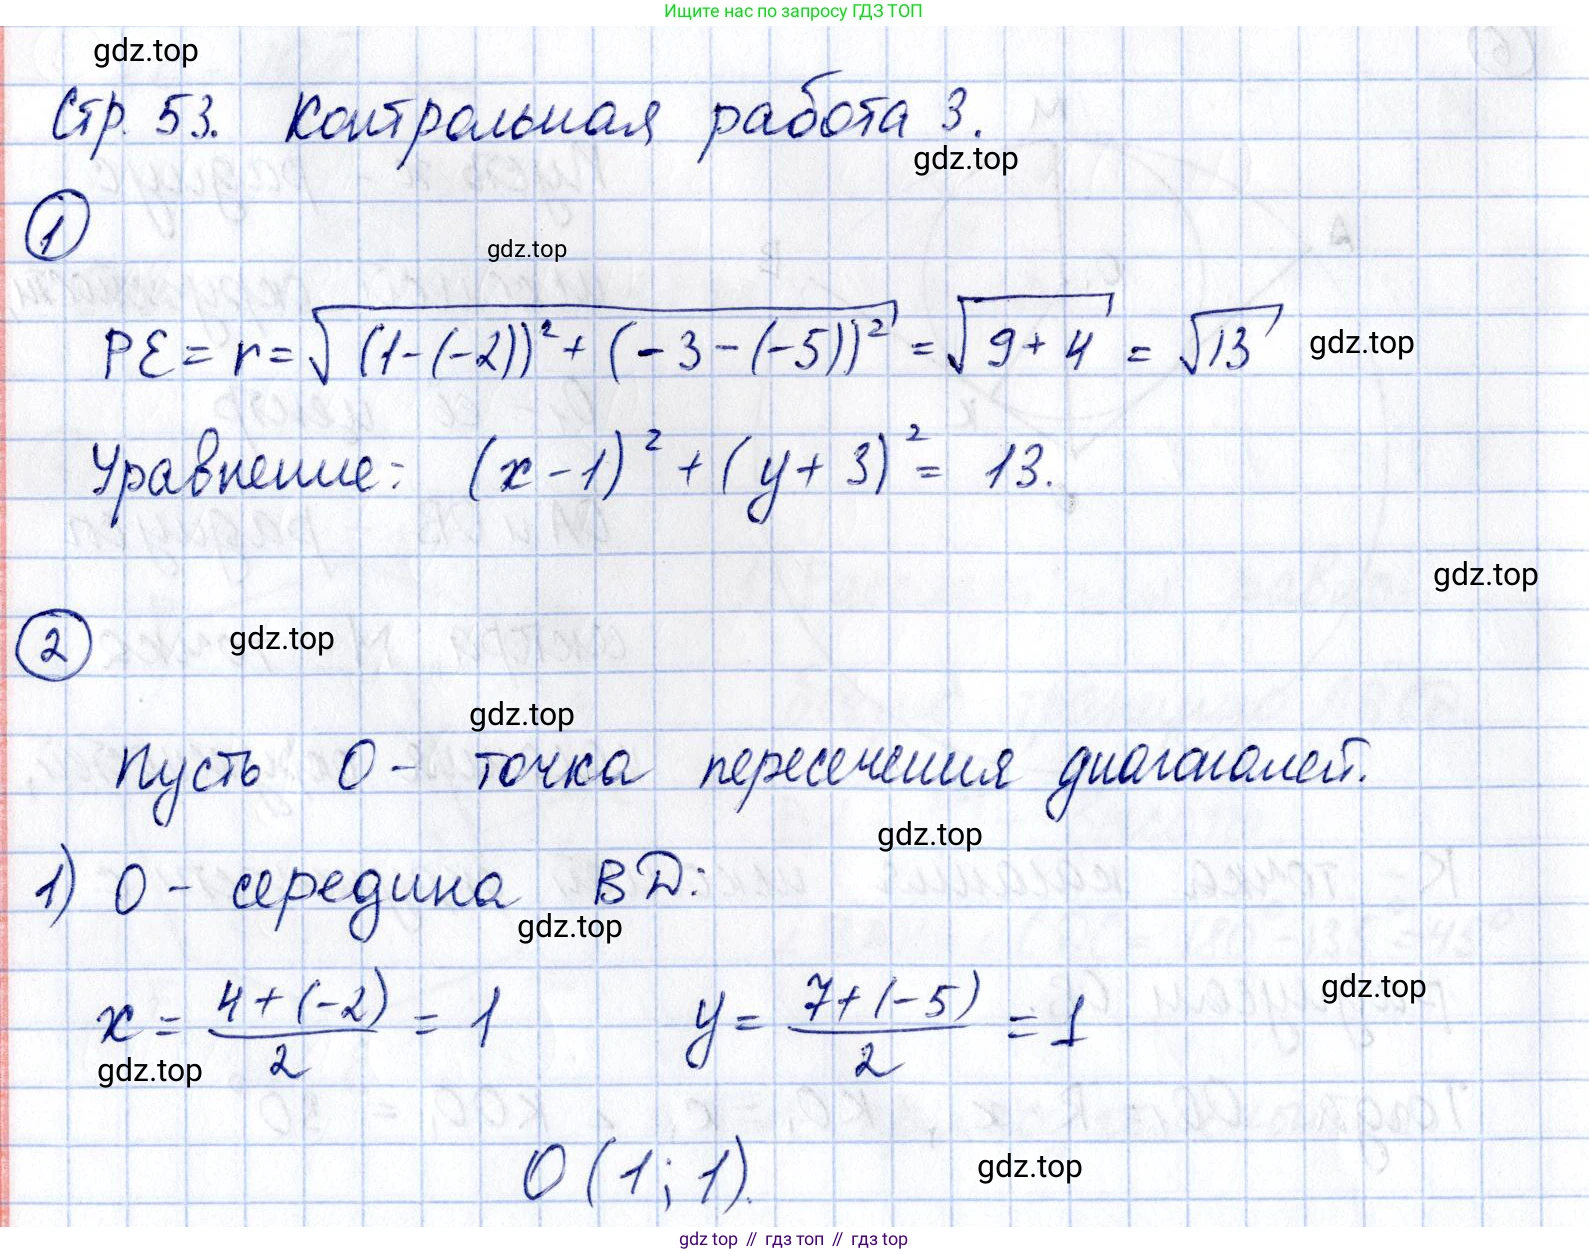 Ищите нас по запросу ГДЗ ТОП
gdz.top
Стр. 53. Контрольная работа 3.
gdz.top
1
gdz.top
PE = r = √((1-(-2))² + (-3-(-5))²) = √(9+4) = √13
gdz.top
Уравнение: (x-1)² + (y+3)² = 13.
gdz.top
2
gdz.top
gdz.top
Пусть O - точка пересечения диагоналей.
gdz.top
1) O - середина BD:
gdz.top
x = (4+(-2))/2 = 1 y = (7+(-5))/2 = 1
gdz.top
gdz.top
O(1; 1).
gdz.top
gdz top // гдз топ // гдз top